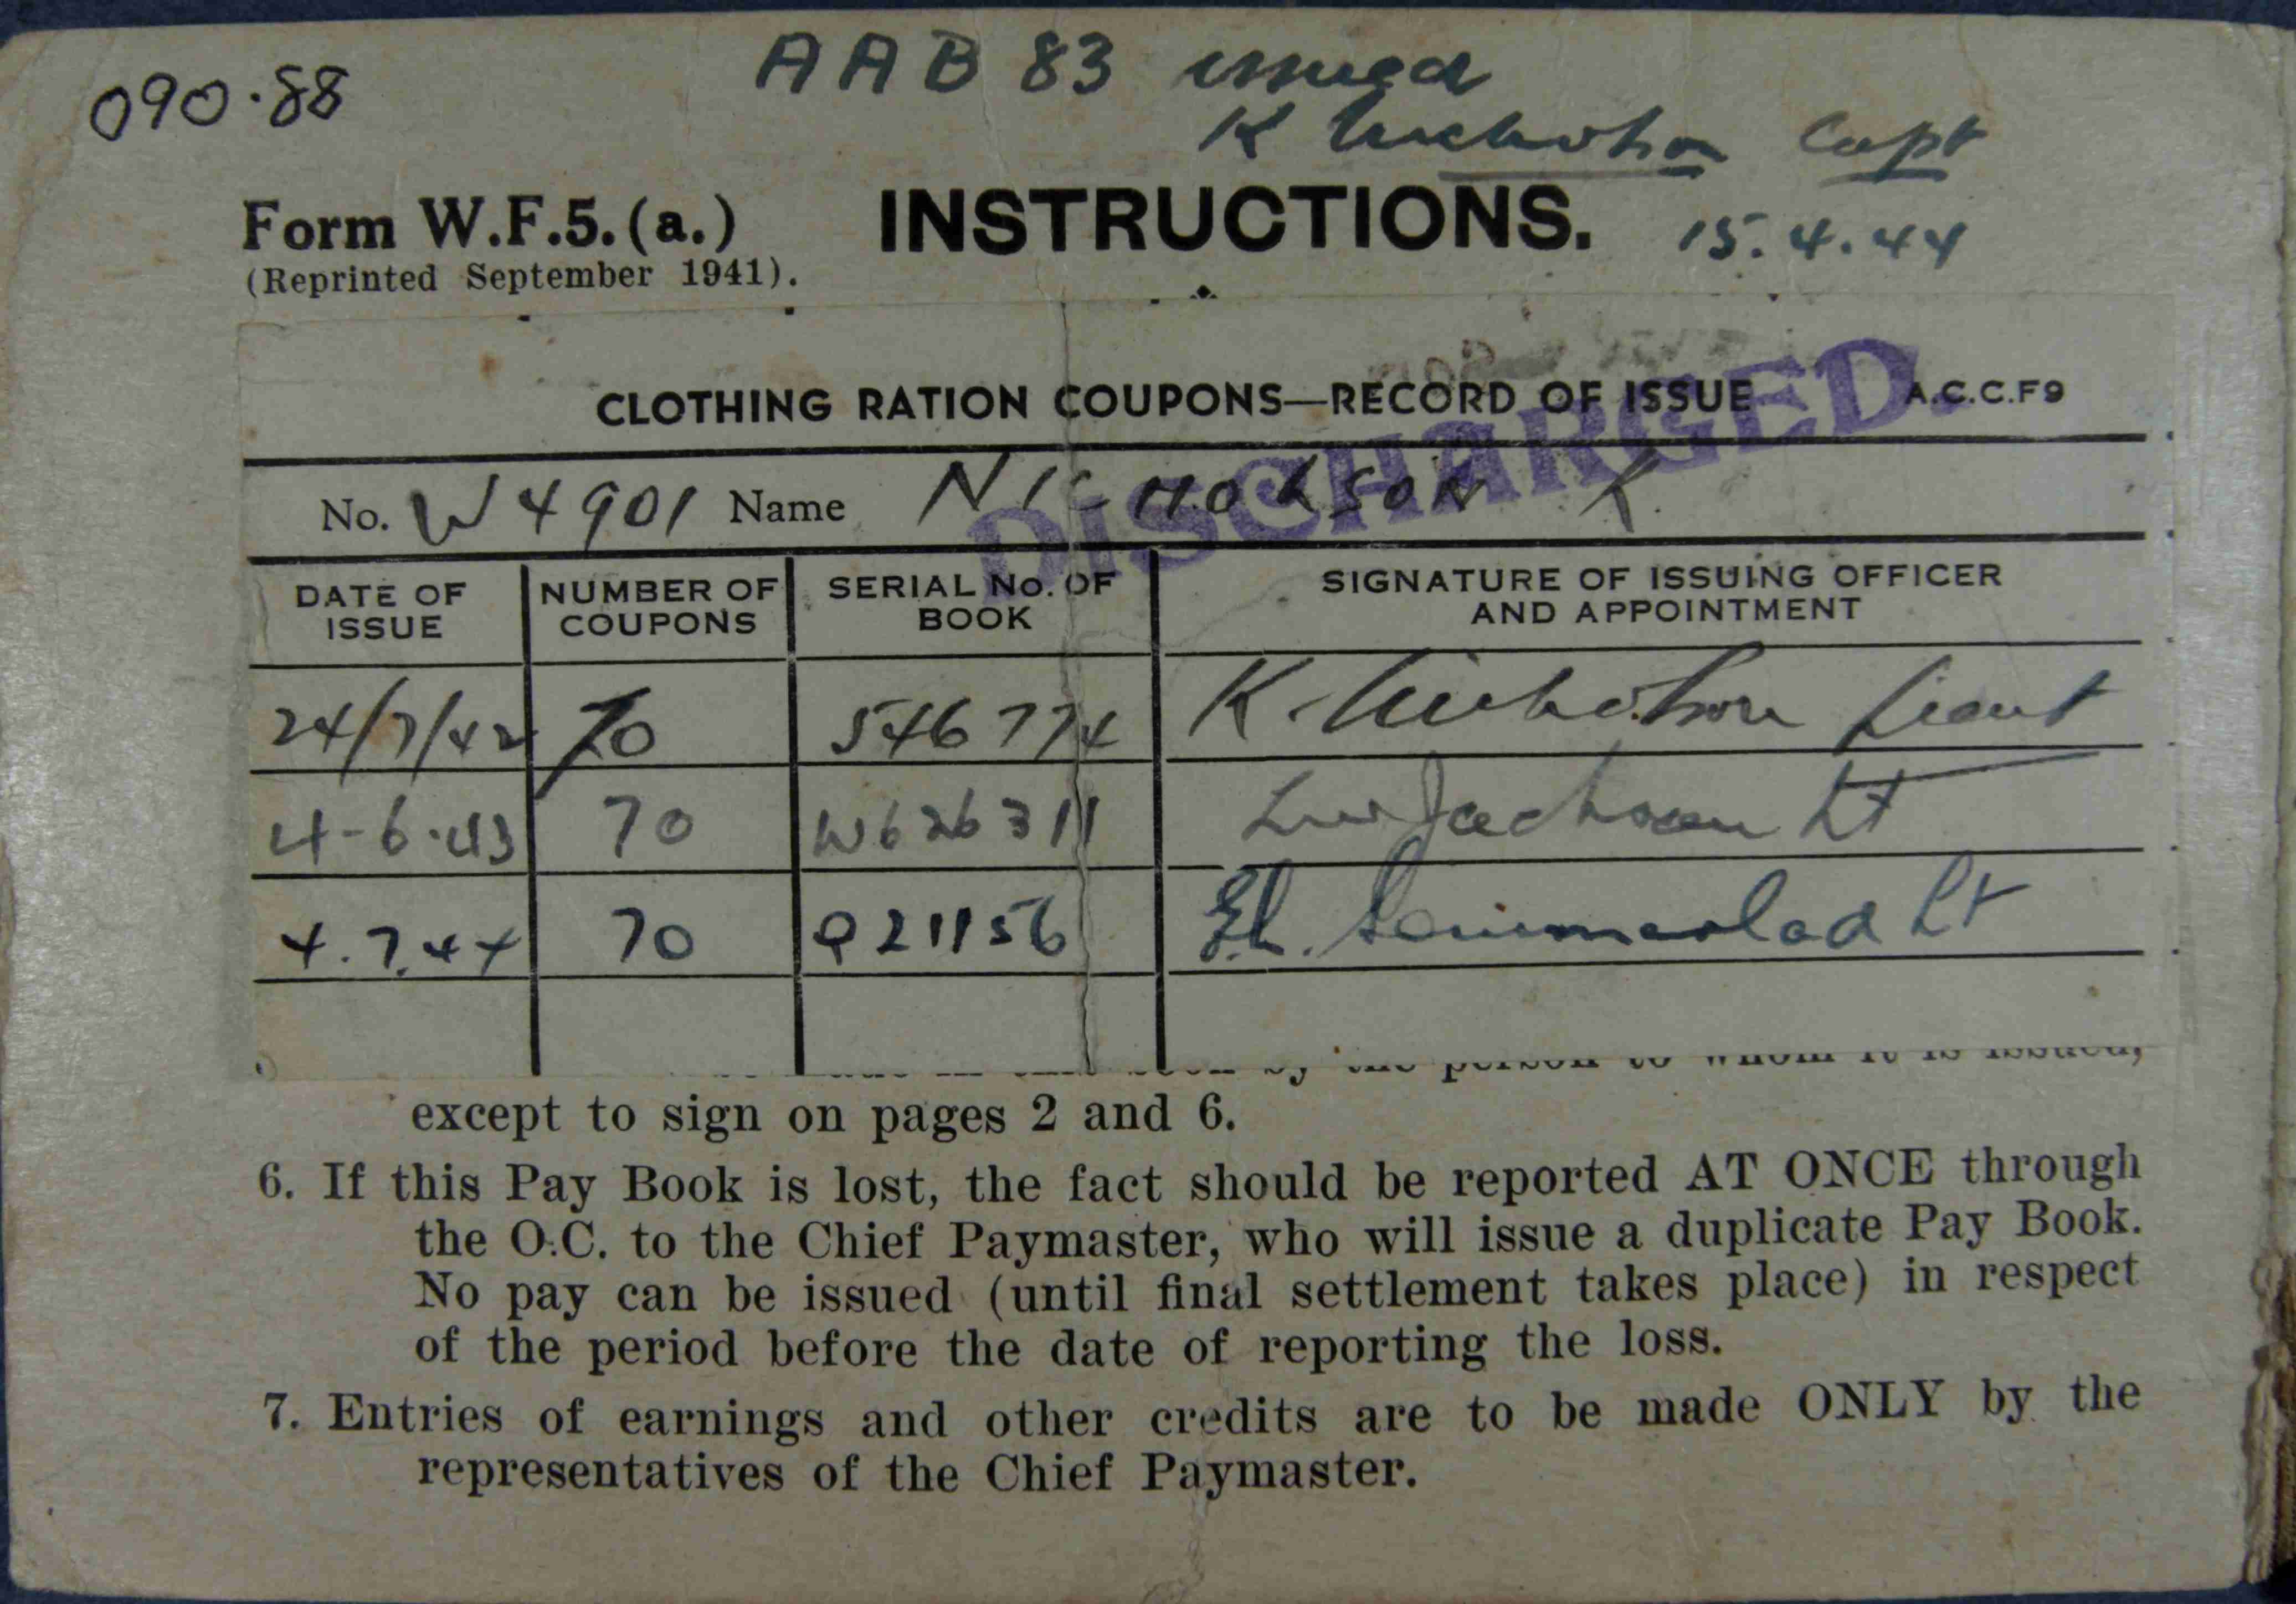 090.88
AAB 83 issued
K Nicholson Capt
Form W.F.5.(a.) INSTRUCTIONS. 15.4.44
(Reprinted September 1941).
CLOTHING RATION COUPONS—RECORD OF ISSUE A.C.C.F9
DISCHARGED.
No. W4901 Name NICHOLSON K.
DATE OF ISSUE NUMBER OF COUPONS SERIAL No. OF BOOK SIGNATURE OF ISSUING OFFICER AND APPOINTMENT
24/7/42 70 546774 K. Nicholson Lieut
4-6-43 70 W626311 Jackson Lt
4.7.44 70 Q21156 Summerlad Lt
by the person to whom it is issued,
except to sign on pages 2 and 6.
6. If this Pay Book is lost, the fact should be reported AT ONCE through
the O.C. to the Chief Paymaster, who will issue a duplicate Pay Book.
No pay can be issued (until final settlement takes place) in respect
of the period before the date of reporting the loss.
7. Entries of earnings and other credits are to be made ONLY by the
representatives of the Chief Paymaster.